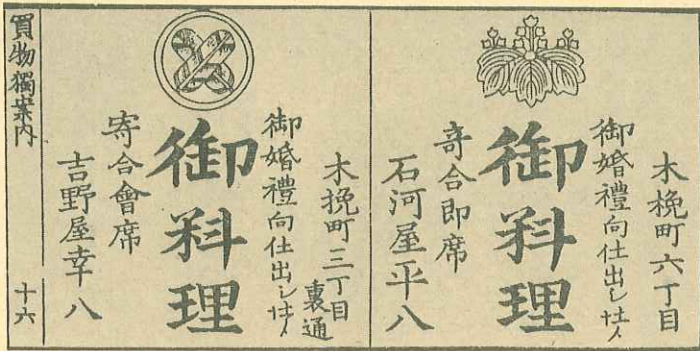 木挽町六丁目
御婚禮向仕出し仕候
御料理
寄合即席
石河屋平八
木挽町三丁目
裏通
御婚禮向仕出し仕候
御料理
寄合會席
吉野屋幸八
買物獨案内
十六